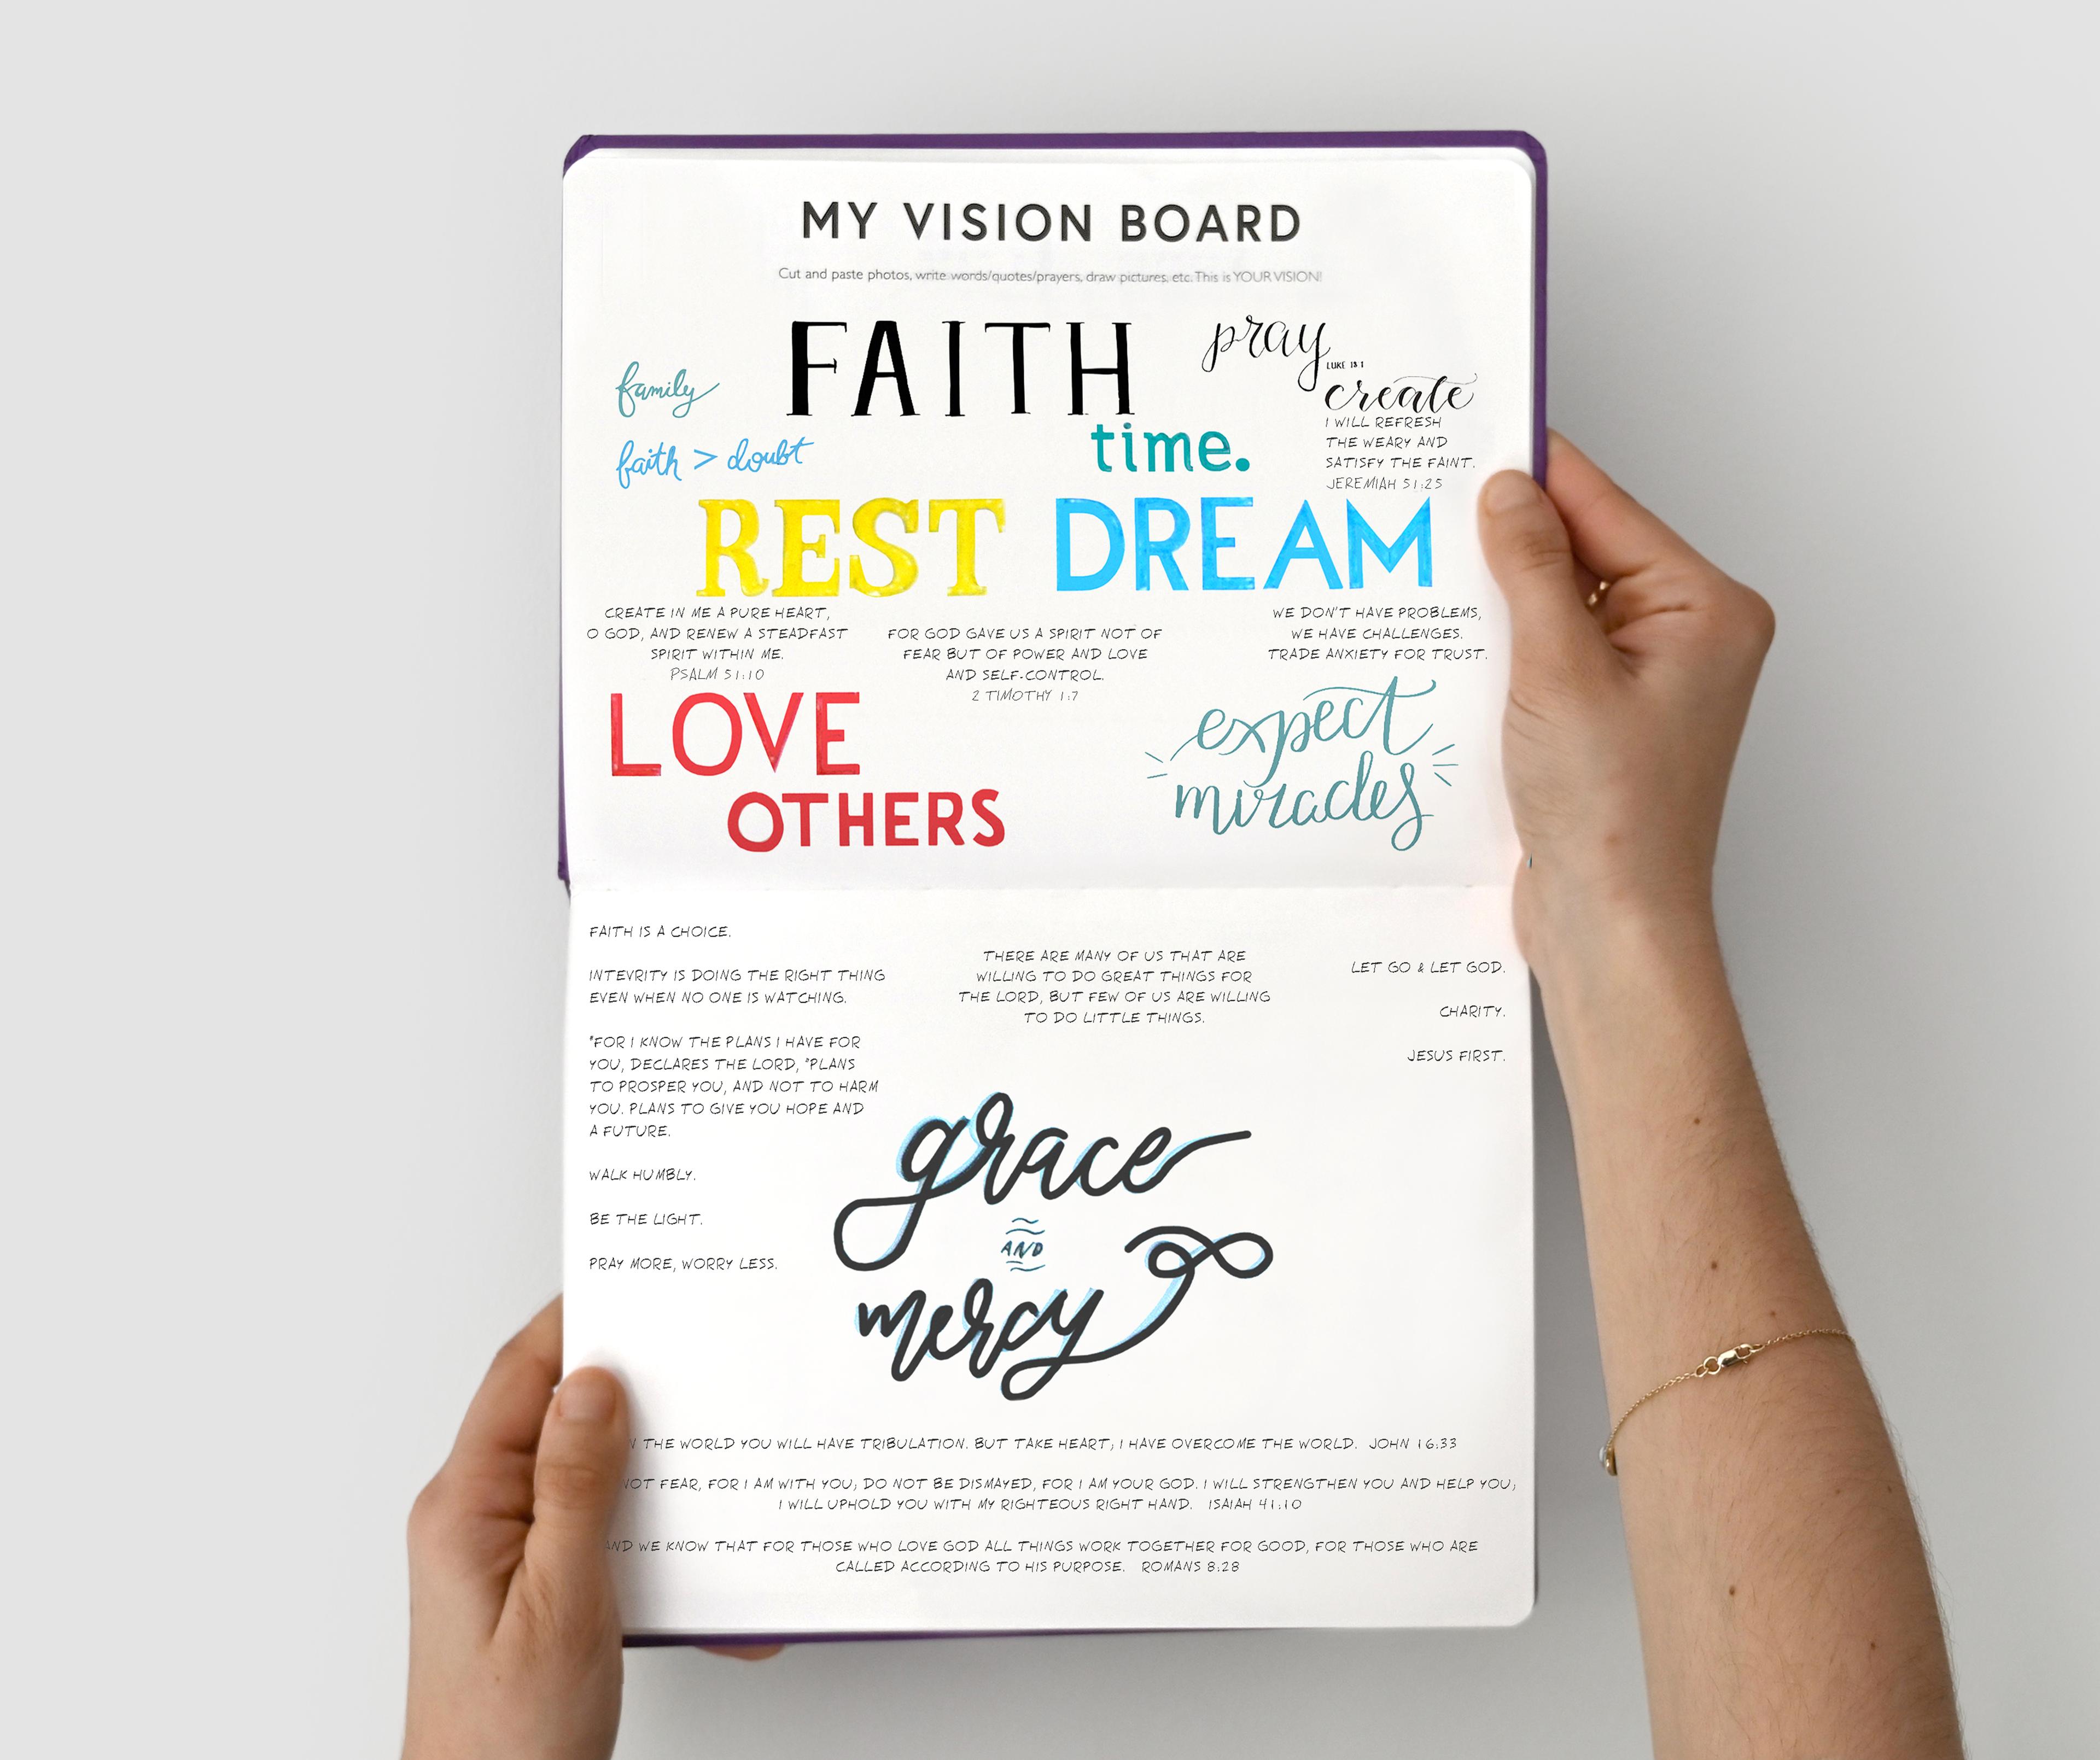 MY VISION BOARD
Cut and paste photos, write words/quotes/prayers, draw pictures, etc. This is YOUR VISION!
FAITH
pray
LUKE 18:1
family
create
I WILL REFRESH
THE WEARY AND
SATISFY THE FAINT.
JEREMIAH 51:25
time.
faith > doubt
REST DREAM
CREATE IN ME A PURE HEART,
O GOD, AND RENEW A STEADFAST
SPIRIT WITHIN ME.
PSALM 51:10
FOR GOD GAVE US A SPIRIT NOT OF
FEAR BUT OF POWER AND LOVE
AND SELF-CONTROL.
2 TIMOTHY 1:7
WE DON'T HAVE PROBLEMS,
WE HAVE CHALLENGES.
TRADE ANXIETY FOR TRUST.
LOVE
OTHERS
expect
miracles
FAITH IS A CHOICE.
INTEVRITY IS DOING THE RIGHT THING
EVEN WHEN NO ONE IS WATCHING.
"FOR I KNOW THE PLANS I HAVE FOR
YOU, DECLARES THE LORD, "PLANS
TO PROSPER YOU, AND NOT TO HARM
YOU. PLANS TO GIVE YOU HOPE AND
A FUTURE.
WALK HUMBLY.
BE THE LIGHT.
PRAY MORE, WORRY LESS.
THERE ARE MANY OF US THAT ARE
WILLING TO DO GREAT THINGS FOR
THE LORD, BUT FEW OF US ARE WILLING
TO DO LITTLE THINGS.
LET GO & LET GOD.
CHARITY.
JESUS FIRST.
grace
AND
mercy
THE WORLD YOU WILL HAVE TRIBULATION. BUT TAKE HEART; I HAVE OVERCOME THE WORLD. JOHN 16:33
NOT FEAR, FOR I AM WITH YOU; DO NOT BE DISMAYED, FOR I AM YOUR GOD. I WILL STRENGTHEN YOU AND HELP YOU;
I WILL UPHOLD YOU WITH MY RIGHTEOUS RIGHT HAND. ISAIAH 41:10
AND WE KNOW THAT FOR THOSE WHO LOVE GOD ALL THINGS WORK TOGETHER FOR GOOD, FOR THOSE WHO ARE
CALLED ACCORDING TO HIS PURPOSE. ROMANS 8:28